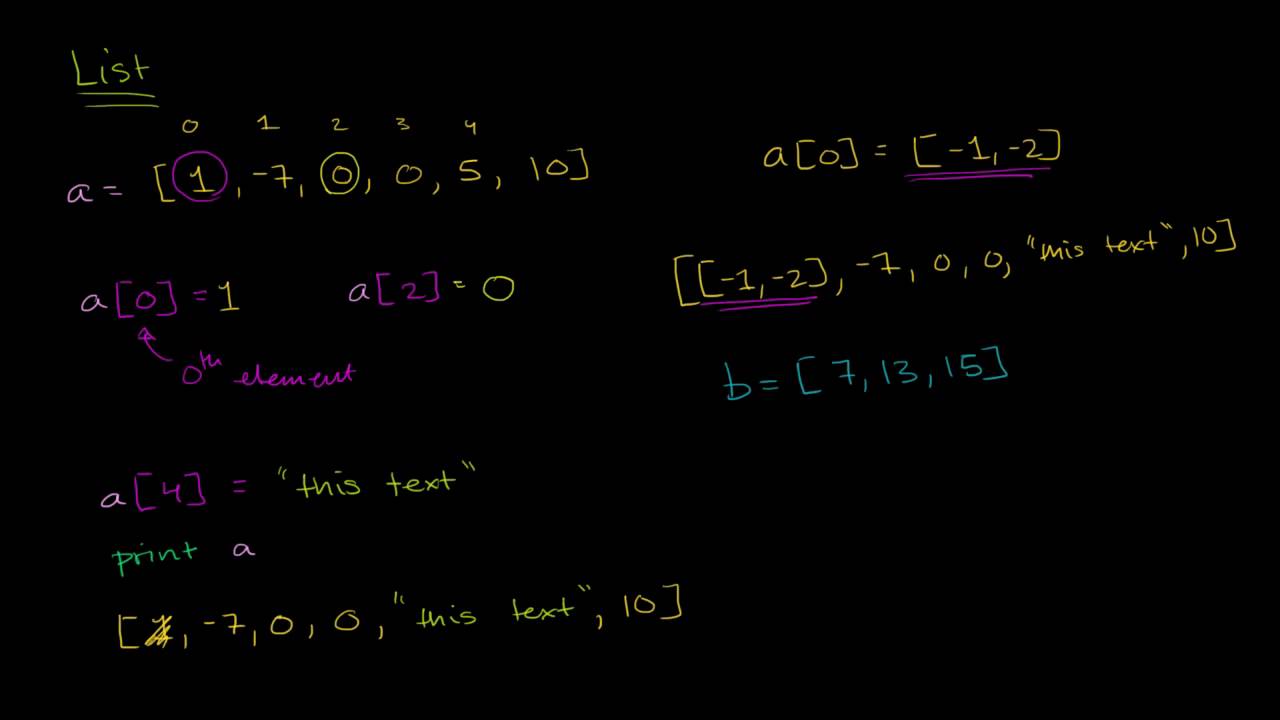 List
0 1 2 3 4
a = [1, -7, 0, 0, 5, 10]
a[0] = 1 a[2] = 0
0th element
a[4] = "this text"
print a
[1, -7, 0, 0, "this text", 10]
a[0] = [-1, -2]
[[-1, -2], -7, 0, 0, "this text", 10]
b = [7, 13, 15]